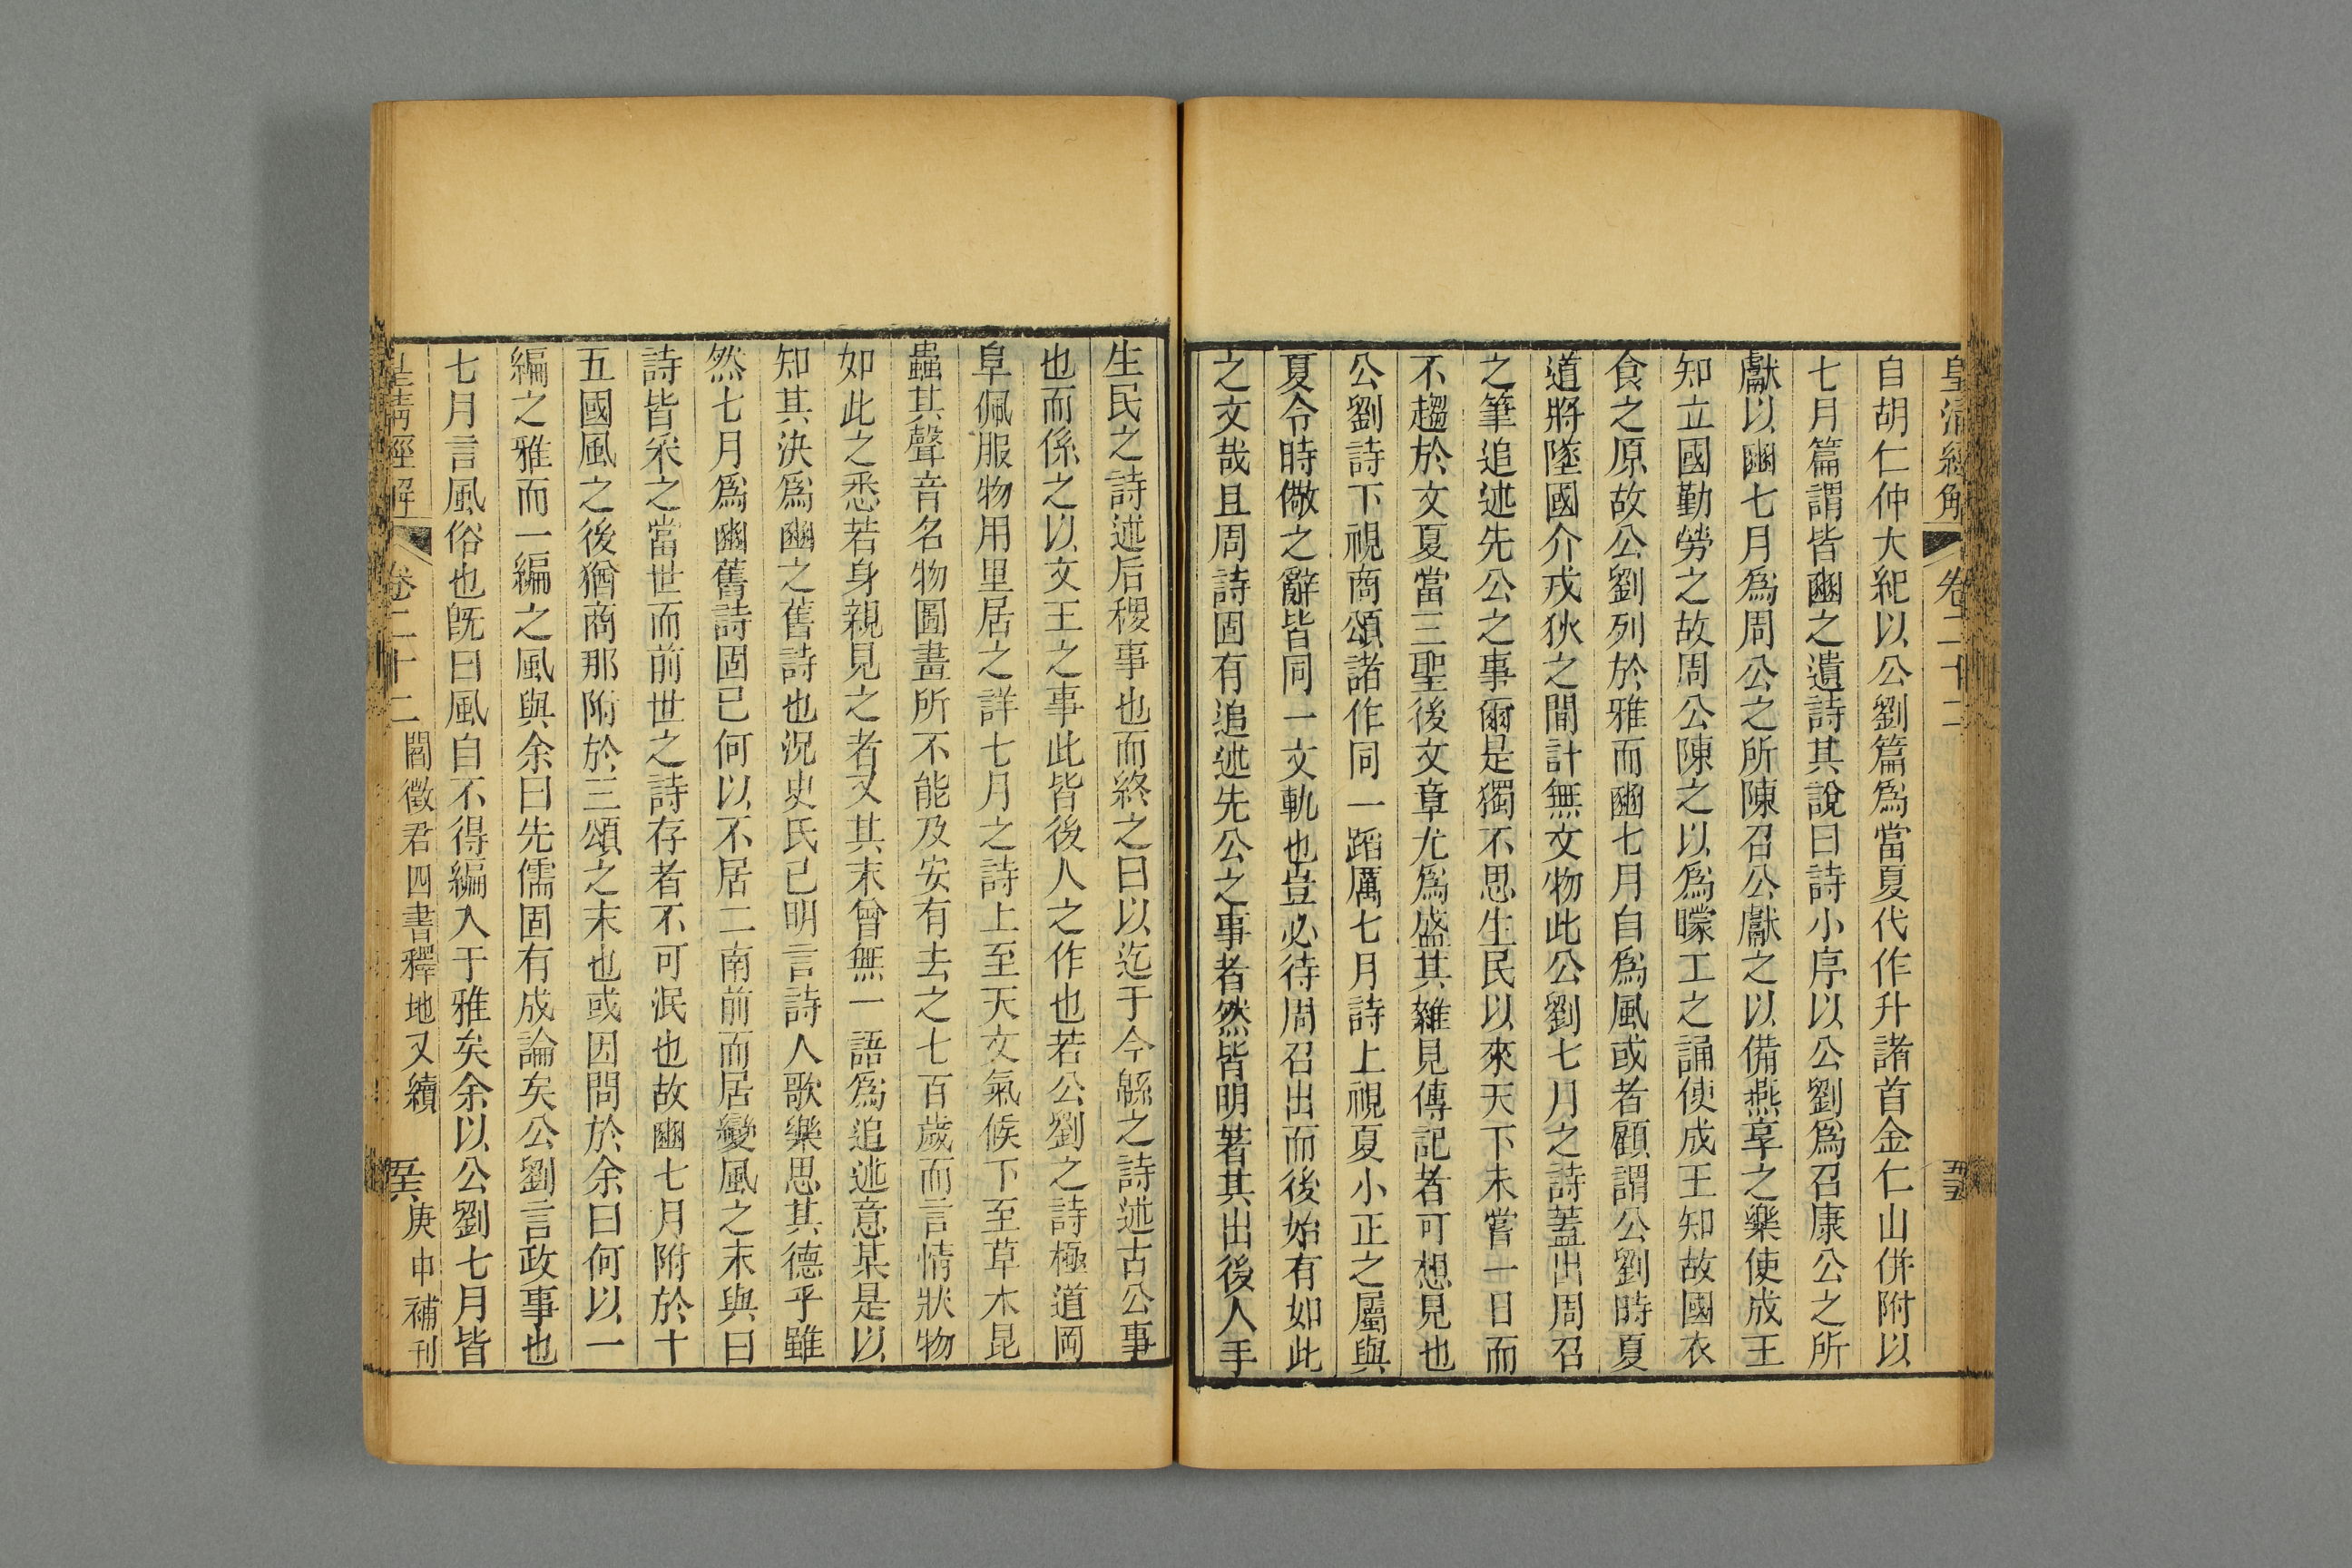 皇清經解 卷二十二 五五
自胡仁仲大紀以公劉篇爲當夏代作升諸首金仁山併附以
七月篇謂皆豳之遺詩其說曰詩小序以公劉爲召康公之所
獻以豳七月爲周公之所陳召公獻之以備燕享之樂使成王
知立國勤勞之故周公陳之以爲矇工之誦使成王知故國衣
食之原故公劉列於雅而豳七月自爲風或者顧謂公劉時夏
道將墜國介戎狄之間計無文物此公劉七月之詩蓋出周召
之筆追述先公之事爾是獨不思生民以來天下未嘗一日而
不趨於文夏當三聖後文章尤爲盛其雜見傳記者可想見也
公劉詩下視商頌諸作同一蹈厲七月詩上視夏小正之屬與
夏令時儆之辭皆同一文軌也豈必待周召出而後始有如此
之文哉且周詩固有追述先公之事者然皆明著其出後人手
生民之詩述后稷事也而終之曰以迄于今緜之詩述古公事
也而係之以文王之事此皆後人之作也若公劉之詩極道岡
阜佩服物用里居之詳七月之詩上至天文氣候下至草木昆
蟲其聲音名物圖畫所不能及安有去之七百歲而言情狀物
如此之悉若身親見之者又其末曾無一語爲追述意某是以
知其決爲豳之舊詩也況史氏已明言詩人歌樂思其德乎雖
然七月爲豳舊詩固已何以不居二南前而居變風之末與曰
詩皆采之當世而前世之詩存者不可泯也故豳七月附於十
五國風之後猶商那附於三頌之末也或因問於余曰何以一
編之雅而一編之風與余曰先儒固有成論矣公劉言政事也
七月言風俗也旣曰風自不得編入于雅矣余以公劉七月皆
皇清經解 卷二十二 閻徵君四書釋地又續 五六 庚申補刊